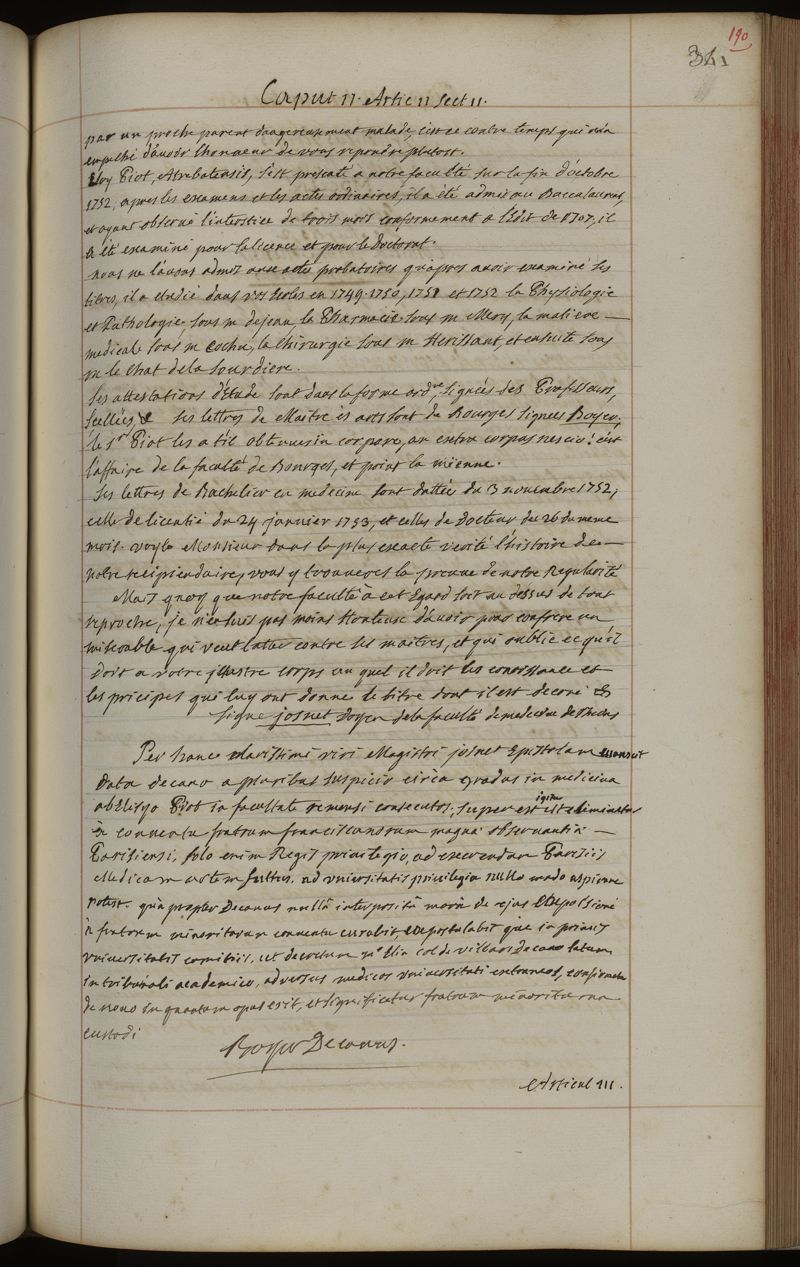 190
341
Caput II. Artic II Sect II.
par un proche parent dangereusement malade, c'est ce contre temps qui m'a
empeché d'avoir l'honneur de vous repondre plutost.
Eloy Piot, Atrebatensis, s'est presenté a notre faculté sur la fin d'octobre
1752, apres les examens et les actes ordinaires, il a été admis au Baccalaureat,
et ayant observé l'interstice de trois mois conformement a l'Edit de 1707, il
a été examiné pour la licence et pour le Doctorat.
nous ne l'avons admis aux actes probatoires qu'apres avoir examiné ses
titres, il a etudié dans vos Ecoles en 1749. 1750, 1751 et 1752 la Physiologie
et Pathologie sous m dejean, la Pharmacie sous m Mery, la matiere
medicale sous m Cochu, la Chirurgie sous m Herissant, et ensuite sous
m le Chat de la Sourdiere.
ses attestations d'étude sont dans la forme ordre, signées des Professeurs,
scellées, & ses lettres de Maitre ès arts sont de Bourges signees Boyer,
le Sr Piot les a t'il obtenues in corpore, an extra corpus nescio! c'est
l'affaire de la faculté de Bourges, et point la mienne.
ses lettres de Bachelier en medecine sont dattées du 3 novembre 1752,
celle de licentié du 24 janvier 1753, et celles de Docteur du 26 du meme
mois. voyla Monsieur dans la plus exacte verité l'histoire de
notre recipiendaire, vous y trouverez la preuve de notre Regularité
Mais quoy que notre faculté à cet Egard soit au dessus de tout
reproche, je n'en suis pas moins honteux d'avoir pour confrere un
miserable qui veut luter contre ses maitres, et qui oublie ce qu'il
doit a votre jllustre corps au quel il doit les connoissance et
les pricipes qui luy ont donné le titre dont il est decoré &
signé josnet Doyen de la faculté de medecine de Rheims
Per hance clarissimi viri Magistri josnet Epistolam evanuit
data decano a pluribus suspicio circa gradus in medicina
ab Eligio Piot in facultate remensi consecutos, superest igitur ut eliminatur
è conventu fratrum franciscanorum magnæ observantiæ
Parisiensi, solo enim Regis privilegio, ad exercendam Parisiis
Medicam artem fultus, ad vniversitatis privilegia nullo modo aspirare
potest. quâ propter Decanus nullâ interpositâ morâ de ejus Expulsione
è fratrum minoritarum conventu curabit expostulabit que in primis
vniversitatis comitiis, ut decretum Mo Elia col de villars decano latum
in tribunali academico, adversus medicos vniversitati extraneos, confirmetur
de novo in quantum opus erit, et significetur fratrum minoritarum
custodi
Boyer Decanus.
Articul III.